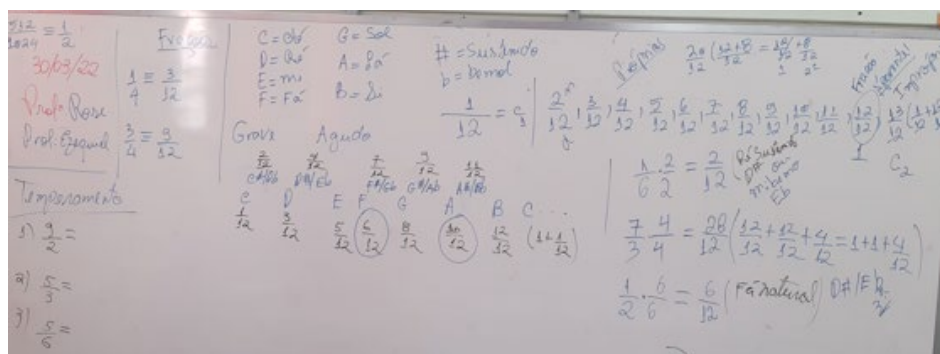 512/1024 ≡ 1/2
30/03/22
Prof. Rose
Prof. Ezequiel
Temperamento
1) 9/2 =
2) 5/3 =
3) 5/6 =
1/4 ≡ 3/12
3/4 ≡ 9/12
C = dó G = Sol
D = Ré A = Lá
E = mi B = Si
F = Fá
Grave Agudo
2/12 4/12 7/12 9/12 11/12
C#/Db D#/Eb F#/Gb G#/Ab A#/Bb
C D E F G A B C...
1/12 3/12 5/12 6/12 8/12 10/12 12/12 (1+1/12)
# = Sustenido
b = bemol
1/12 = C1 | 2/12, 3/12, 4/12, 5/12, 6/12, 7/12, 8/12, 9/12, 10/12, 11/12, 12/12, 13/12
Próprias
20/12 (12+8/12 =
Fração Aparente
1
C2
1/6 · 2/2 = 2/12
Ré Sustenido
D#
ou
mi bemol
Eb
7/3 · 4/4 = 28/12 (12/12 + 12/12 + 4/12 = 1+1+4/12)
1/2 · 6/6 = 6/12 (Fá natural) D#/Eb